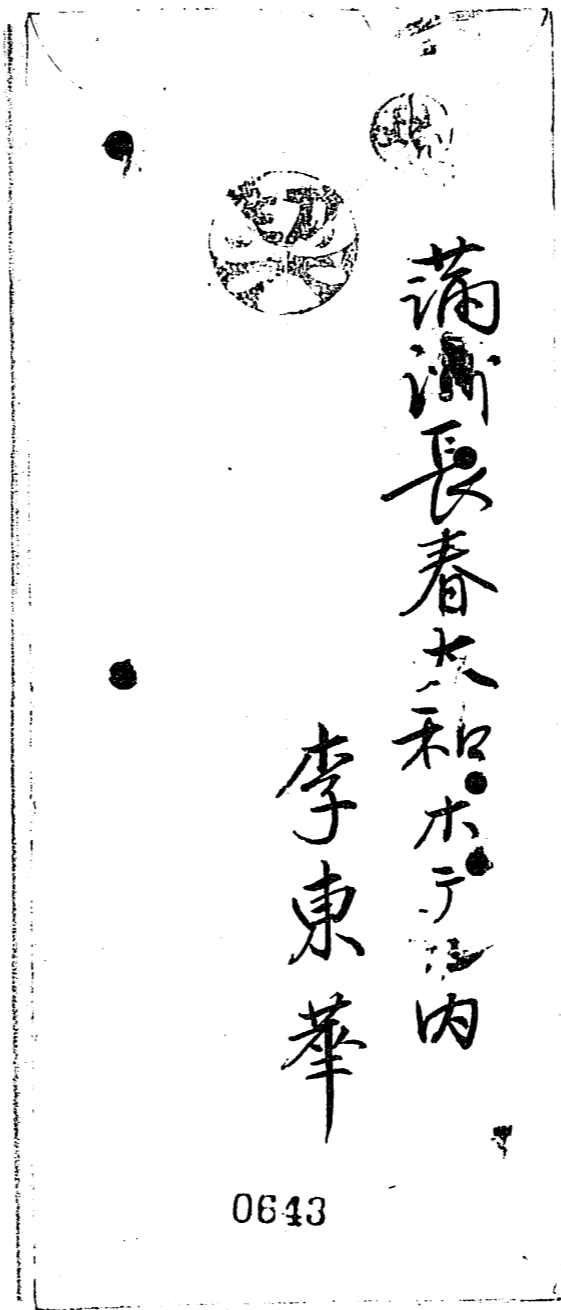 滿洲長春大和ホテル内
李東華
0643